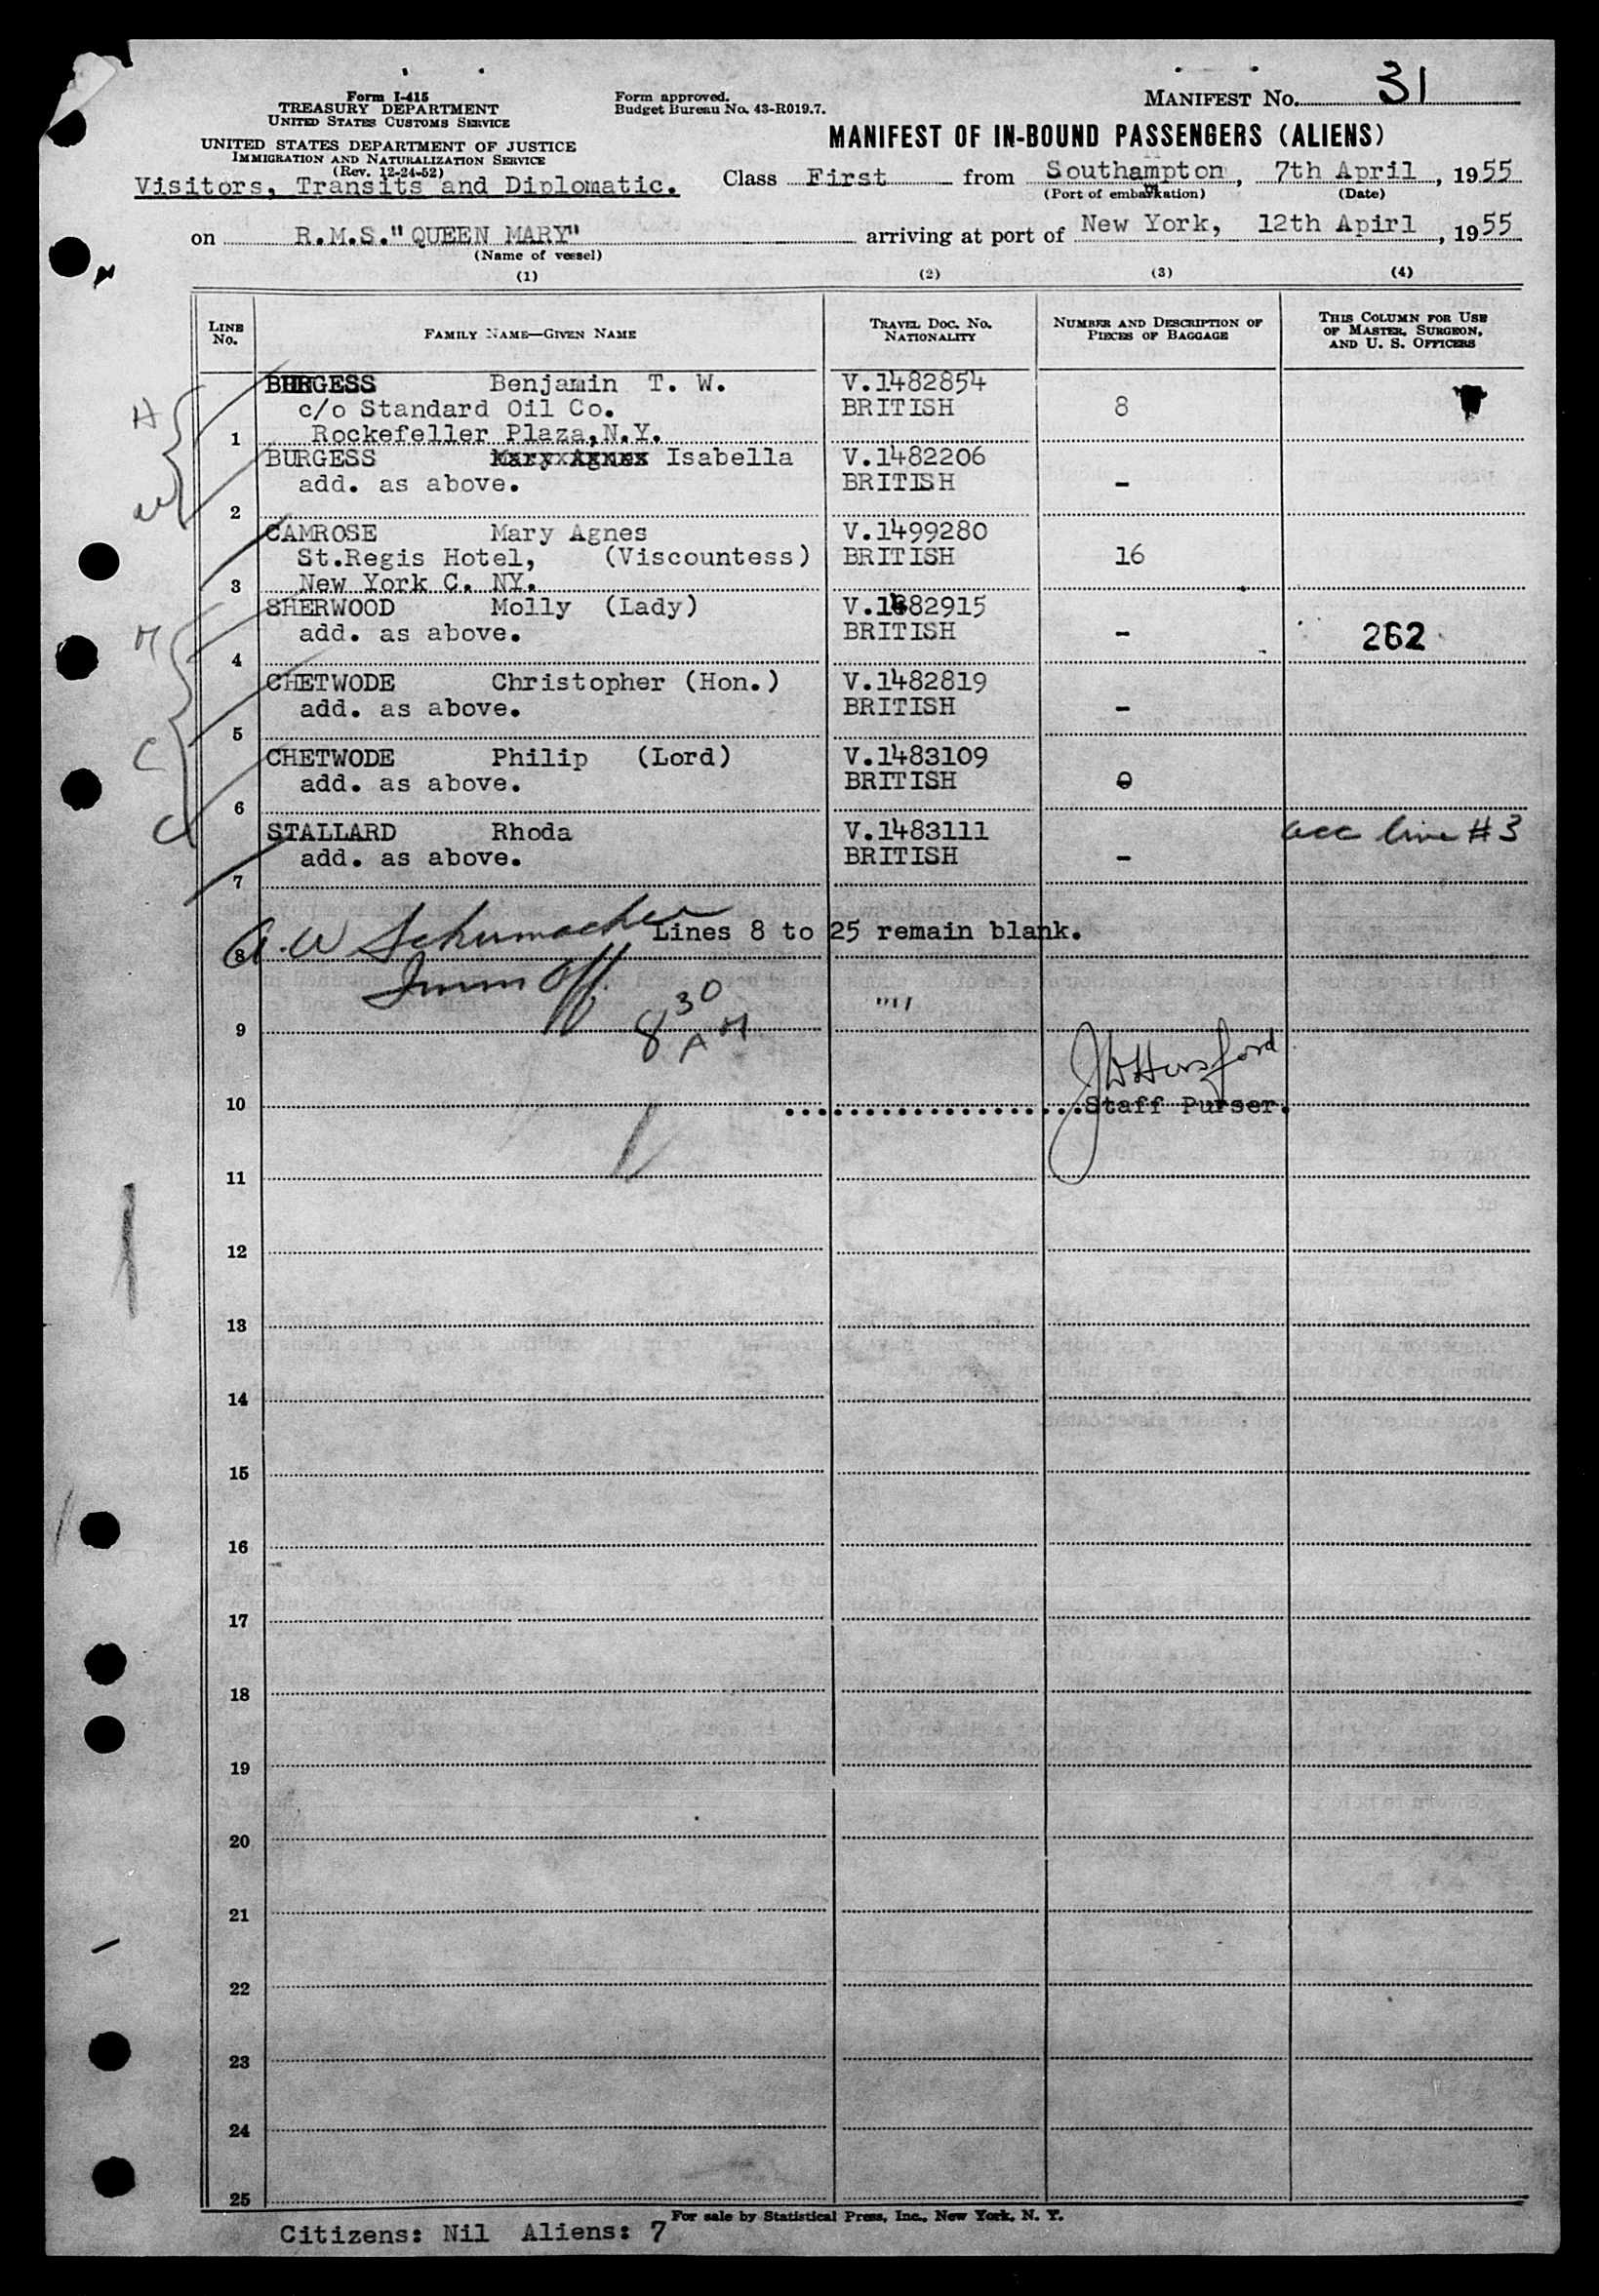 Form I-415
TREASURY DEPARTMENT
UNITED STATES CUSTOMS SERVICE
UNITED STATES DEPARTMENT OF JUSTICE
IMMIGRATION AND NATURALIZATION SERVICE
(Rev. 12-24-52)
Visitors, Transits and Diplomatic.
Form approved.
Budget Bureau No. 43-R019.7.
MANIFEST No. 31
MANIFEST OF IN-BOUND PASSENGERS (ALIENS)
Class First from Southampton, 7th April, 1955
(Port of embarkation) (Date)
on R.M.S."QUEEN MARY" arriving at port of New York, 12th Apirl, 1955
(Name of vessel)
(1) (2) (3) (4)
LINE No. FAMILY NAME—GIVEN NAME TRAVEL DOC. No. NATIONALITY NUMBER AND DESCRIPTION OF PIECES OF BAGGAGE THIS COLUMN FOR USE OF MASTER, SURGEON, AND U. S. OFFICERS
H
BURGESS Benjamin T. W. V.1482854
c/o Standard Oil Co. BRITISH 8
1 Rockefeller Plaza,N.Y.
BURGESS Mary Agnes Isabella V.1482206
W add. as above. BRITISH -
2
CAMROSE Mary Agnes V.1499280
St.Regis Hotel, (Viscountess) BRITISH 16
3 New York C. NY.
SHERWOOD Molly (Lady) V.1482915
M add. as above. BRITISH - 262
4
CHETWODE Christopher (Hon.) V.1482819
add. as above. BRITISH -
5
C
CHETWODE Philip (Lord) V.1483109
add. as above. BRITISH
6
C
STALLARD Rhoda V.1483111 acc line #3
add. as above. BRITISH -
7
A.W Schumacher Lines 8 to 25 remain blank.
8
Imm Off.
8 30 AM
9
J W Horsford
10 Staff Purser.
11
12
13
14
15
16
17
18
19
20
21
22
23
24
25
For sale by Statistical Press, Inc., New York, N. Y.
Citizens: Nil Aliens: 7